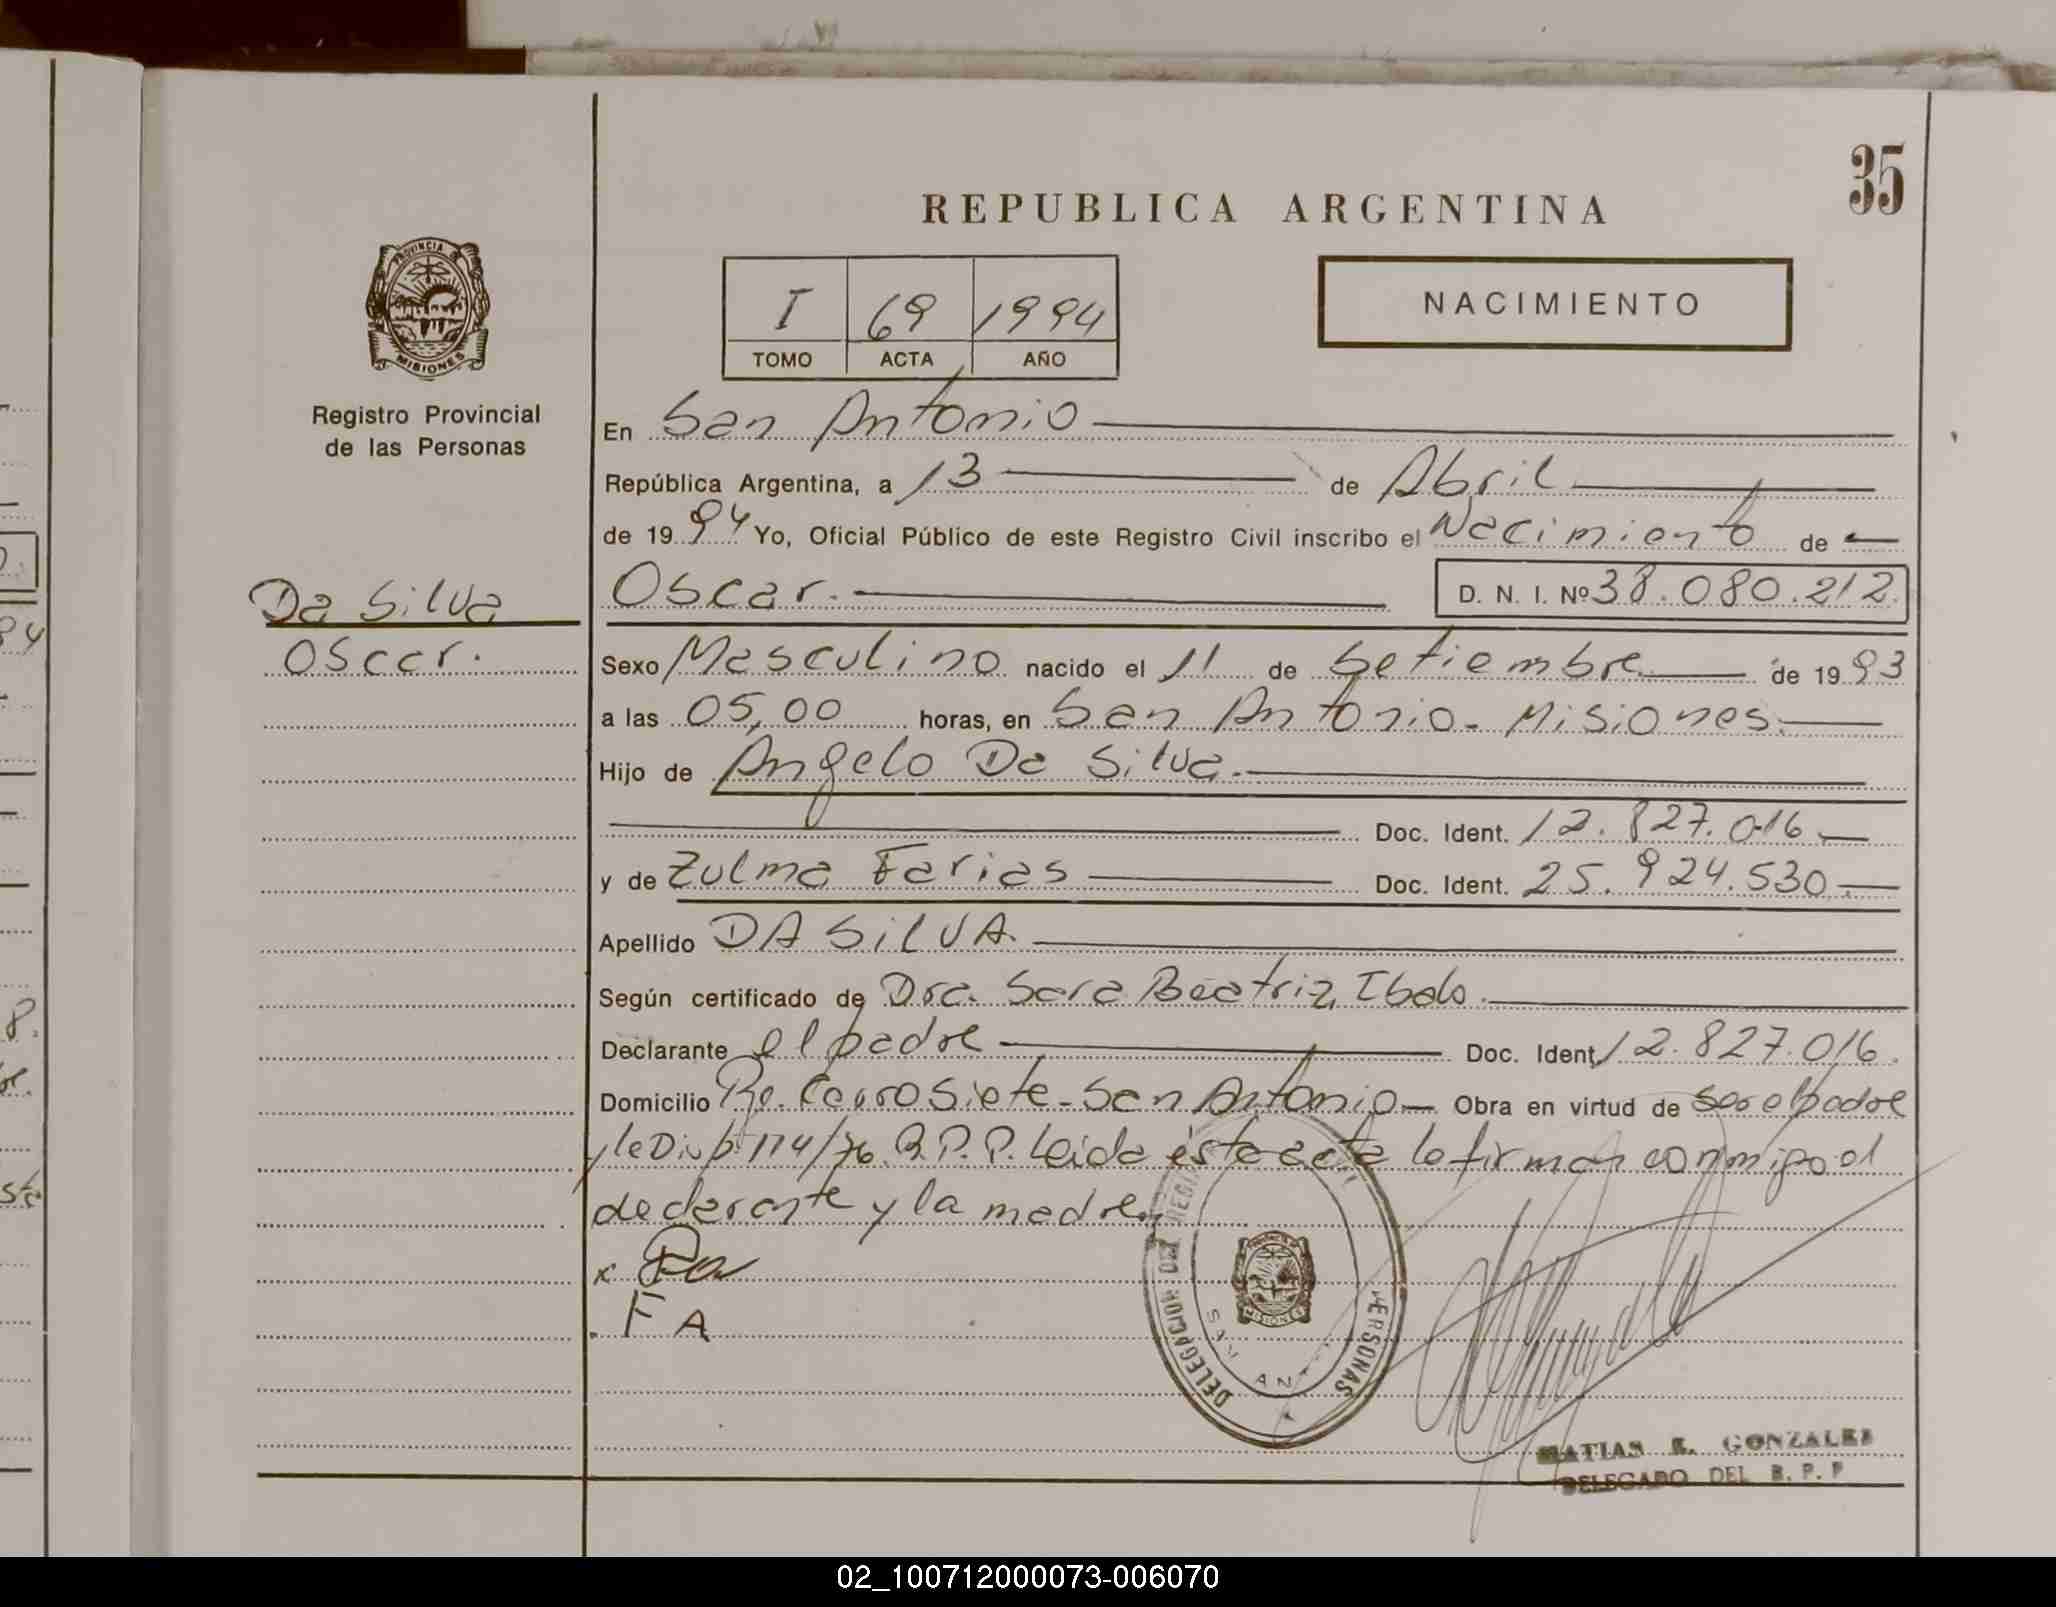 35
REPUBLICA ARGENTINA
I 69 1994
TOMO ACTA AÑO
NACIMIENTO
PROVINCIA DE
MISIONES
Registro Provincial
de las Personas
Da Silva
Oscar.
En San Antonio
República Argentina, a 13 de Abril
de 1994 Yo, Oficial Público de este Registro Civil inscribo el Nacimiento de
Oscar. D. N. I. Nº 38.080.212.
Sexo Masculino nacido el 11 de Setiembre de 1993
a las 05,00 horas, en San Antonio - Misiones.
Hijo de Angelo Da Silva.
Doc. Ident. 12.827.016.
y de Zulma Farias Doc. Ident. 25.924.530.
Apellido DA SILVA.
Según certificado de Dra. Sara Beatriz
Declarante el padre Doc. Ident. 12.827.016.
Domicilio San Antonio Obra en virtud de ser el padre
y la Disp. 114/76 R.P.P. Leida esta acta la firman conmigo el
declarante y la madre.
x
F A
DELEGACION DEL REGI PERSONAS
SAN AN
MISIONES
MATIAS E. GONZALEZ
DELEGADO DEL R. P. P
02_100712000073-006070